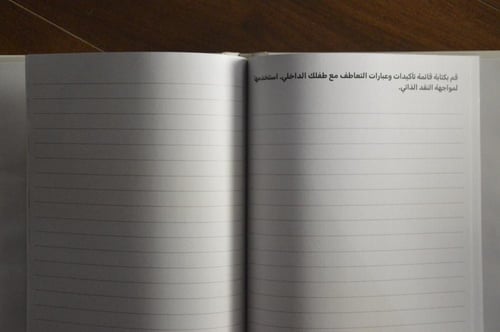 قم بكتابة قائمة تأكيدات وعبارات التعاطف مع طفلك الداخلي. استخدمها
لمواجهة النقد الذاتي.